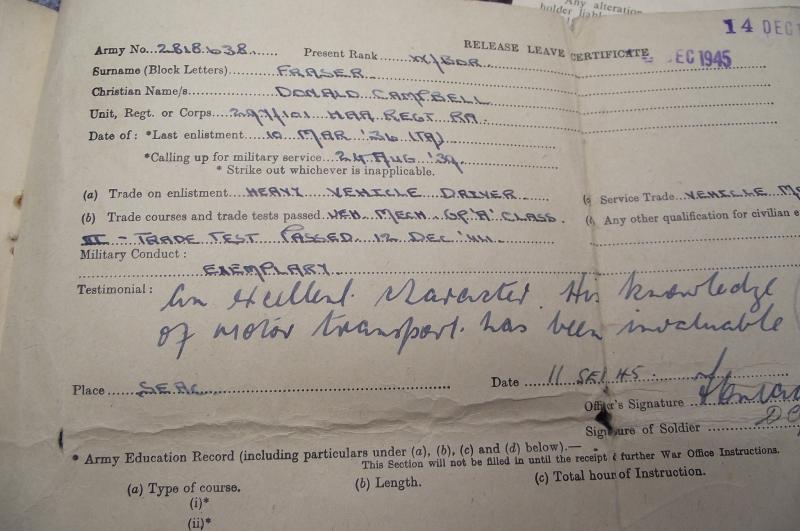 Any alteration
holder liabl
14 DEC 1
RELEASE LEAVE CERTIFICATE
DEC 1945
Army No. 2818638 Present Rank W/BDR
Surname (Block Letters) FRASER
Christian Name/s DONALD CAMPBELL
Unit, Regt. or Corps 297/101 HAA REGT RA
Date of : *Last enlistment 10 MAR '36 (TA)
*Calling up for military service 24 AUG '39
* Strike out whichever is inapplicable.
(a) Trade on enlistment HEAVY VEHICLE DRIVER (c Service Trade VEHICLE ME
(b) Trade courses and trade tests passed VEH. MECH GP. 'A' CLASS. (d Any other qualification for civilian e
III - TRADE TEST PASSED 12 DEC '44
Military Conduct :
EXEMPLARY
Testimonial : An excellent character. His knowledge
of motor transport has been invaluable
Place SEAC Date 11 SEP 45
Officer's Signature
Signature of Soldier DC
* Army Education Record (including particulars under (a), (b), (c) and (d) below).—
This Section will not be filled in until the receipt of further War Office Instructions.
(a) Type of course. (b) Length. (c) Total hour of Instruction.
(i)*
(ii)*